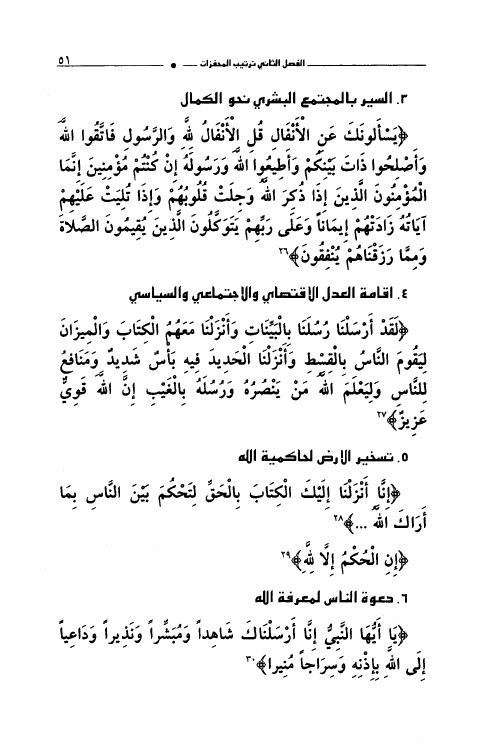 الفصل الثاني ترتيب المحفزات ٥١
٣. السير بالمجتمع البشري نحو الكمال
﴿يَسْأَلونَكَ عَنِ الْأَنْفَالِ قُلِ الْأَنْفَالُ لِلَّهِ وَالرَّسُولِ فَاتَّقُوا اللَّهَ
وَأَصْلِحُوا ذَاتَ بَيْنِكُمْ وَأَطِيعُوا اللَّهَ وَرَسُولَهُ إِنْ كُنْتُمْ مُؤْمِنِينَ إِنَّمَا
الْمُؤْمِنُونَ الَّذِينَ إِذَا ذُكِرَ اللَّهُ وَجِلَتْ قُلُوبُهُمْ وَإِذَا تُلِيَتْ عَلَيْهِمْ
آيَاتُهُ زَادَتْهُمْ إِيمَاناً وَعَلَى رَبِّهِمْ يَتَوَكَّلُونَ الَّذِينَ يُقِيمُونَ الصَّلاةَ
وَمِمَّا رَزَقْنَاهُمْ يُنْفِقُونَ﴾٢٦
٤. اقامة العدل الاقتصاي والاجتماعي والسياسي
﴿لَقَدْ أَرْسَلْنَا رُسُلَنَا بِالْبَيِّنَاتِ وَأَنْزَلْنَا مَعَهُمُ الْكِتَابَ وَالْمِيزَانَ
لِيَقُومَ النَّاسُ بِالْقِسْطِ وَأَنْزَلْنَا الْحَدِيدَ فِيهِ بَأْسٌ شَدِيدٌ وَمَنَافِعُ
لِلنَّاسِ وَلِيَعْلَمَ اللَّهُ مَنْ يَنْصُرُهُ وَرُسُلَهُ بِالْغَيْبِ إِنَّ اللَّهَ قَوِيٌّ
عَزِيزٌ﴾٢٧
٥. تسخير الارض لحاكمية الله
﴿إِنَّا أَنْزَلْنَا إِلَيْكَ الْكِتَابَ بِالْحَقِّ لِتَحْكُمَ بَيْنَ النَّاسِ بِمَا
أَرَاكَ اللَّهُ ...﴾٢٨
﴿إِنِ الْحُكْمُ إِلَّا لِلَّهِ﴾٢٩
٦. دعوة الناس لمعرفة الله
﴿يَا أَيُّهَا النَّبِيُّ إِنَّا أَرْسَلْنَاكَ شَاهِداً وَمُبَشِّراً وَنَذِيراً وَدَاعِياً
إِلَى اللَّهِ بِإِذْنِهِ وَسِرَاجاً مُنِيرا﴾٣٠